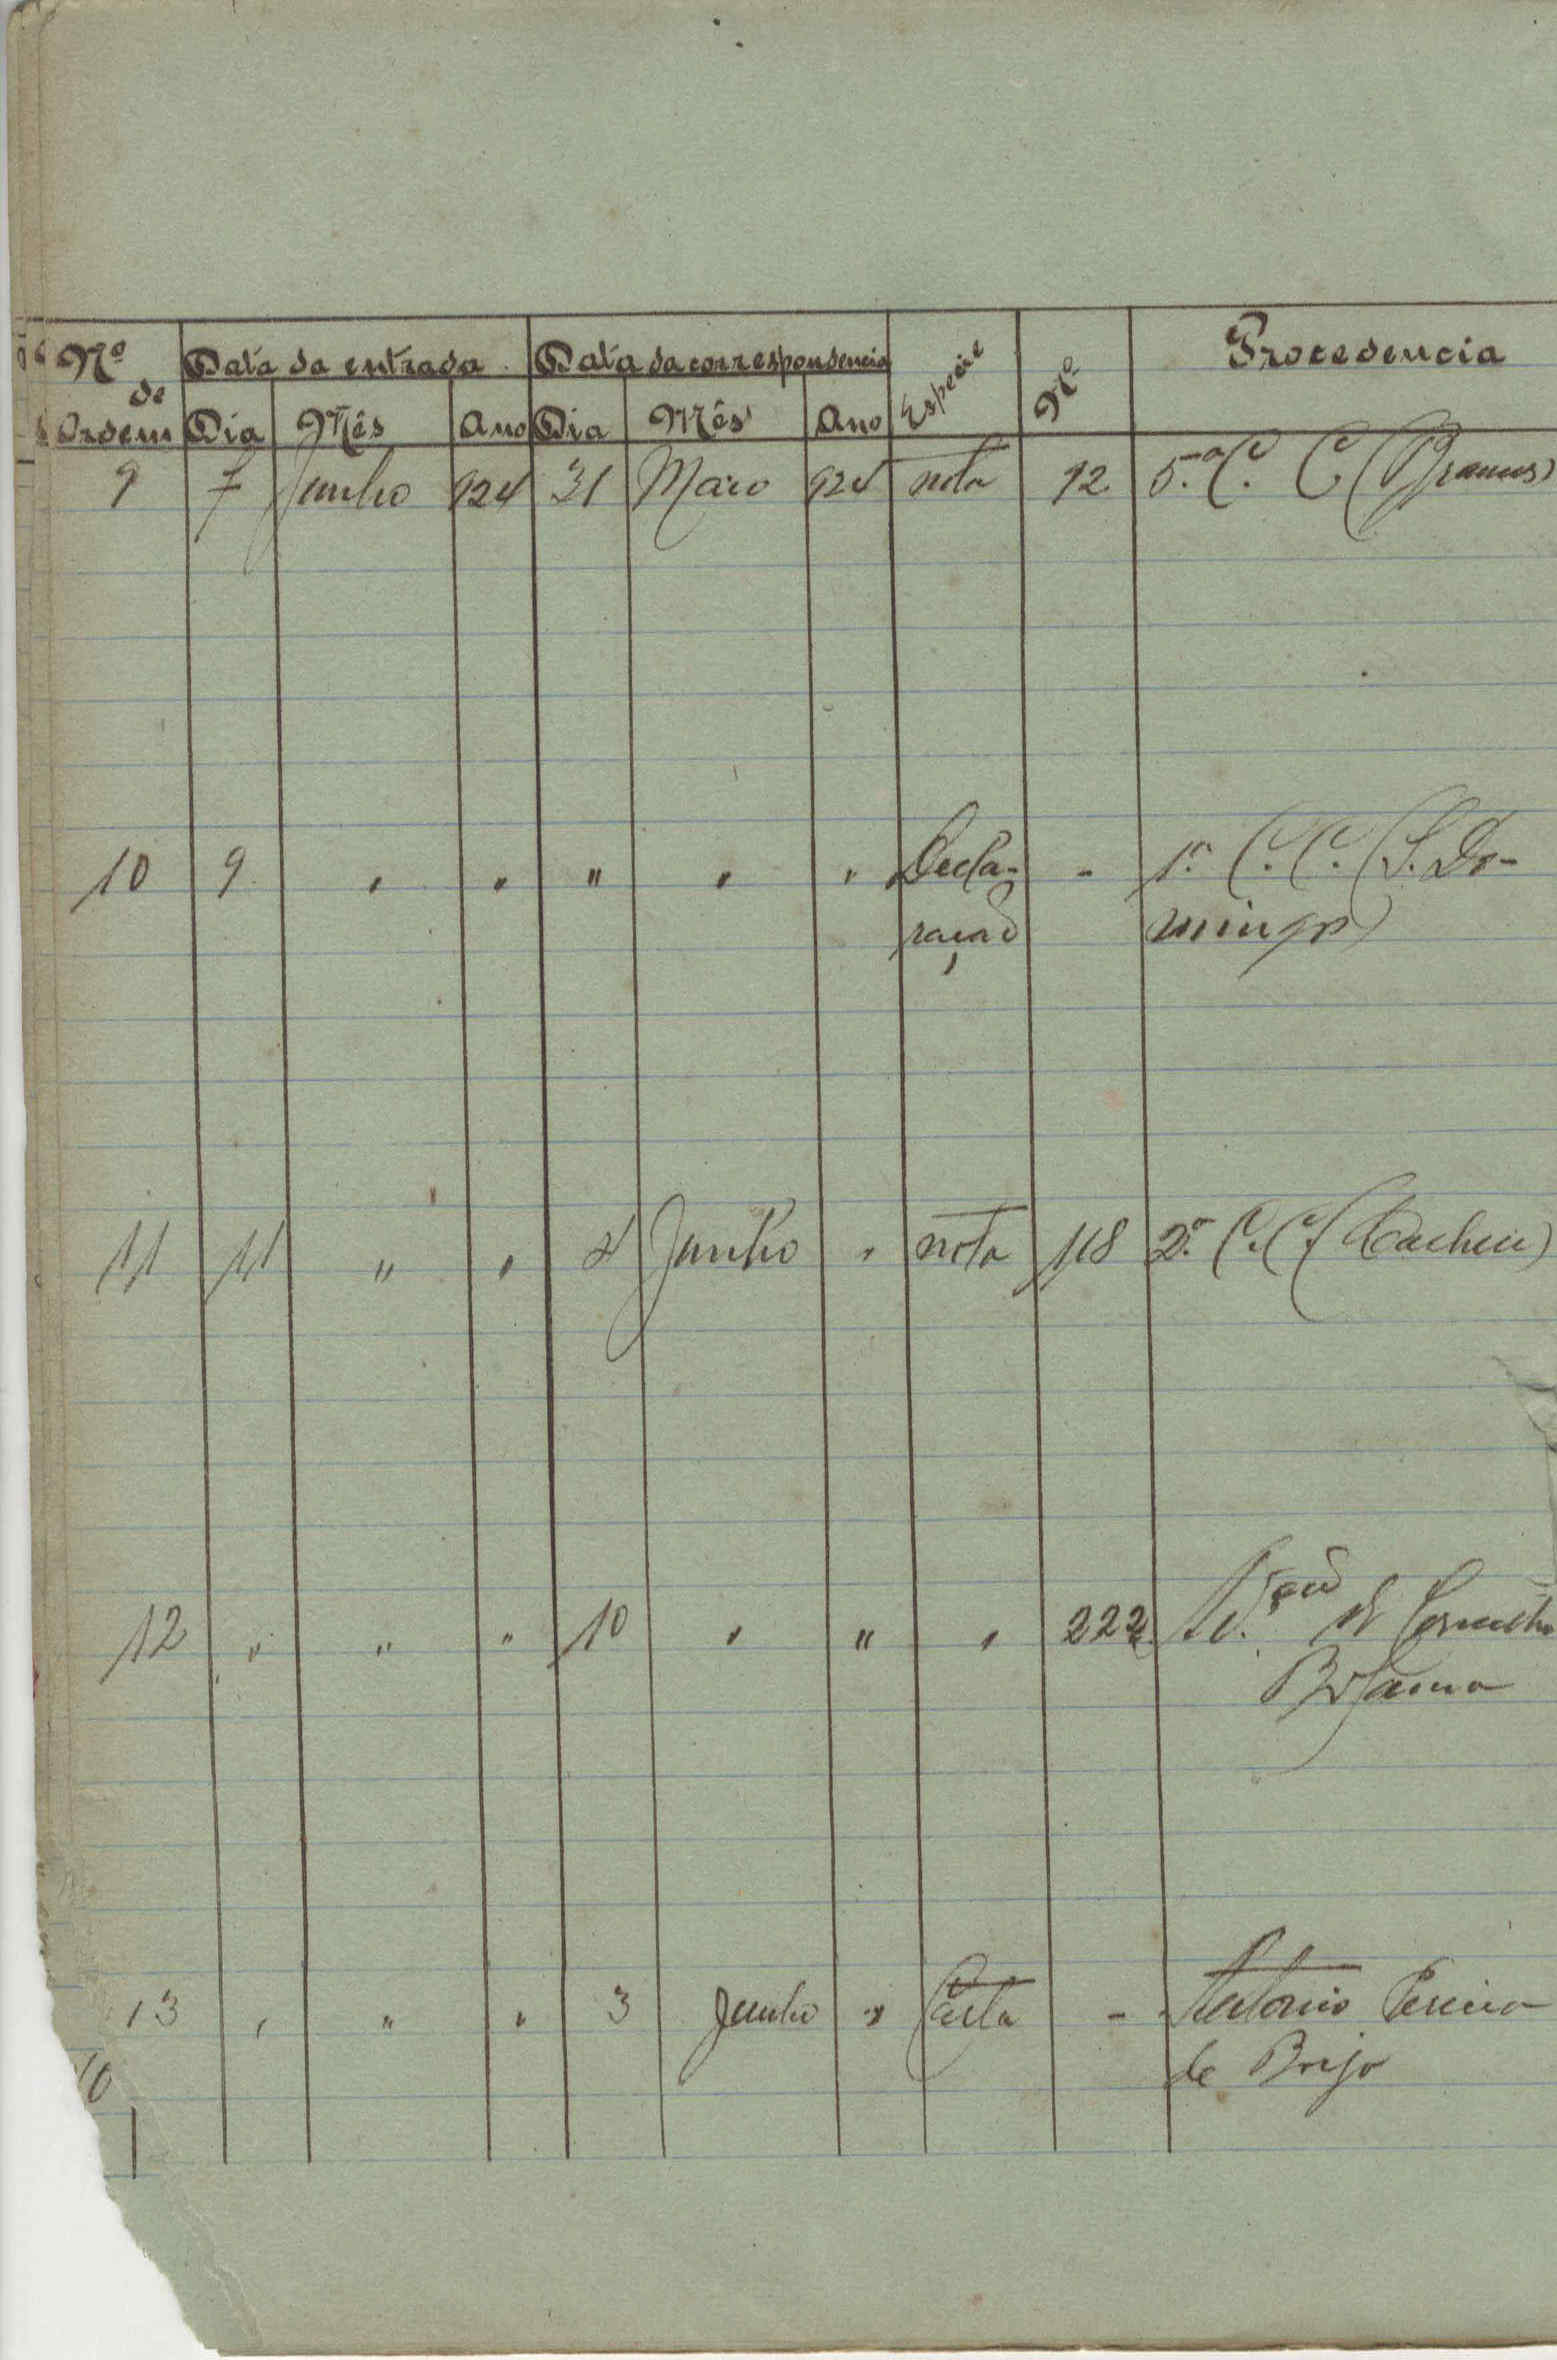 Nº de Ordem Data da entrada Data da correspondencia Especie Nº Procedencia
Dia Mês Ano Dia Mês Ano
9 7 Junho 924 31 Maio 924 nota 12 5.ª C. C.
10 9 " " " " " Decla- - 1.ª C. C. (S. Do-
ração mingos)
11 11 " " 4 Junho " nota 118 2.ª C. C. (Cacheu)
12 " " " 10 " " " 222
Bolama
13 " " " 3 Junho " Carta - Antonio Pereira
de
10